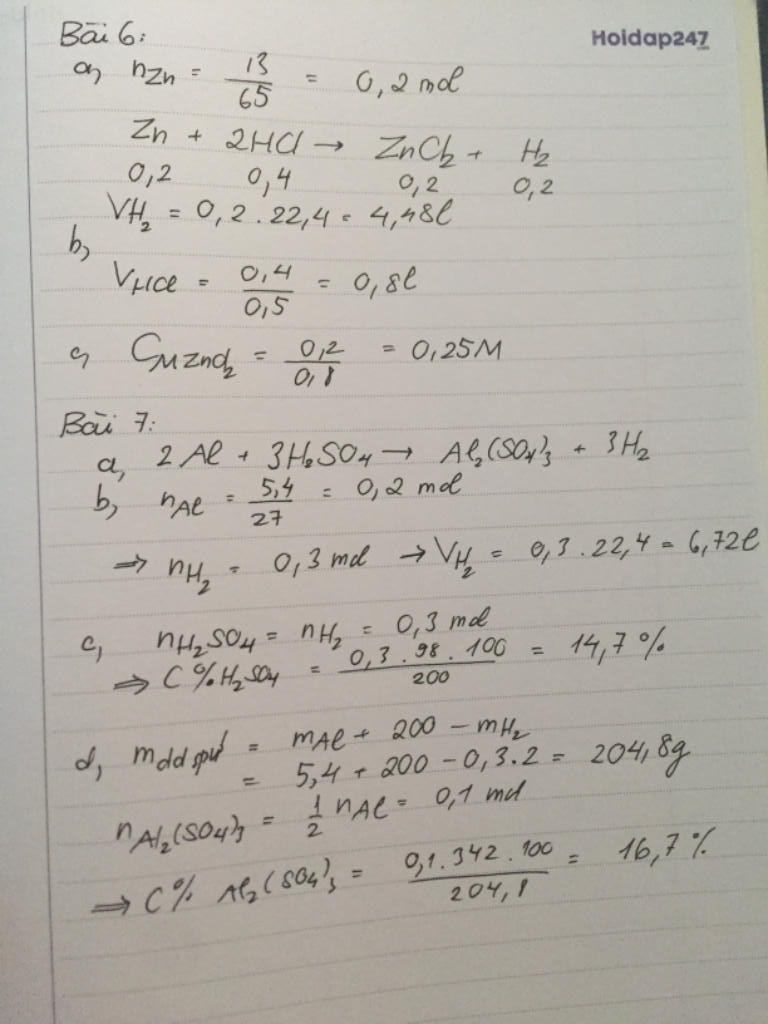 Bài 6:
Hoidap247
.com
a, nZn = 13/65 = 0,2 mol
Zn + 2HCl → ZnCl2 + H2
0,2 0,4 0,2 0,2
VH2 = 0,2 . 22,4 = 4,48l
b,
VHCl = 0,4/0,5 = 0,8l
c, CM ZnCl2 = 0,2/0,8 = 0,25M
Bài 7:
a, 2Al + 3H2SO4 → Al2(SO4)3 + 3H2
b, nAl = 5,4/27 = 0,2 mol
⇒ nH2 = 0,3 mol → VH2 = 0,3 . 22,4 = 6,72l
c, nH2SO4 = nH2 = 0,3 mol
⇒ C% H2SO4 = 0,3 . 98 . 100/200 = 14,7 %
d, mdd spứ = mAl + 200 - mH2
= 5,4 + 200 - 0,3.2 = 204,8g
nAl2(SO4)3 = 1/2 nAl = 0,1 mol
⇒ C% Al2(SO4)3 = 0,1 . 342 . 100/204,8 = 16,7 %